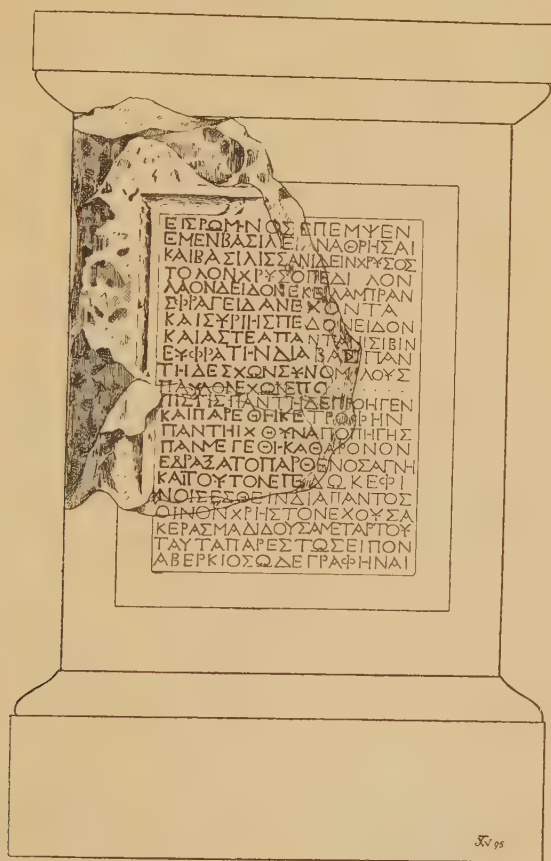 ΕΙΣΡΩΜΗΝΟΣΕΠΕΜΨΕΝ
ΕΜΕΝΒΑΣΙΛΕΙΑΝΑΘΡΗΣΑΙ
ΚΑΙΒΑΣΙΛΙΣΣΑΝΙΔΕΙΝΧΡΥΣΟΣ
ΤΟΛΟΝΧΡΥΣΟΠΕΔΙΛΟΝ
ΛΑΟΝΔΕΙΔΟΝΕΚΕΙΛΑΜΠΡΑΝ
ΣΦΡΑΓΕΙΔΑΝΕΧΟΝΤΑ
ΚΑΙΣΥΡΙΗΣΠΕΔΟΝΕΙΔΟΝ
ΚΑΙΑΣΤΕΑΠΑΝΤΑΝΙΣΙΒΙΝ
ΕΥΦΡΑΤΗΝΔΙΑΒΑΣΠΑΝ
ΤΗΔΕΣΧΩΝΣΥΝΟΜΙΛΟΥΣ
ΠΑΥΛΟΝΕΧΩΝΕΠΟ
ΠΙΣΤΙΣΠΑΝΤΗΔΕΠΡΟΗΓΕΝ
ΚΑΙΠΑΡΕΘΗΚΕΤΡΟΦΗΝ
ΠΑΝΤΗΙΧΘΥΝΑΠΟΠΗΓΗΣ
ΠΑΝΜΕΓΕΘΗΚΑΘΑΡΟΝΟΝ
ΕΔΡΑΞΑΤΟΠΑΡΘΕΝΟΣΑΓΝΗ
ΚΑΙΤΟΥΤΟΝΕΠΕΔΩΚΕΦΙ
ΛΟΙΣΕΣΘΕΙΝΔΙΑΠΑΝΤΟΣ
ΟΙΝΟΝΧΡΗΣΤΟΝΕΧΟΥΣΑ
ΚΕΡΑΣΜΑΔΙΔΟΥΣΑΜΕΤΑΡΤΟΥ
ΤΑΥΤΑΠΑΡΕΣΤΩΣΕΙΠΟΝ
ΑΒΕΡΚΙΟΣΩΔΕΓΡΑΦΗΝΑΙ